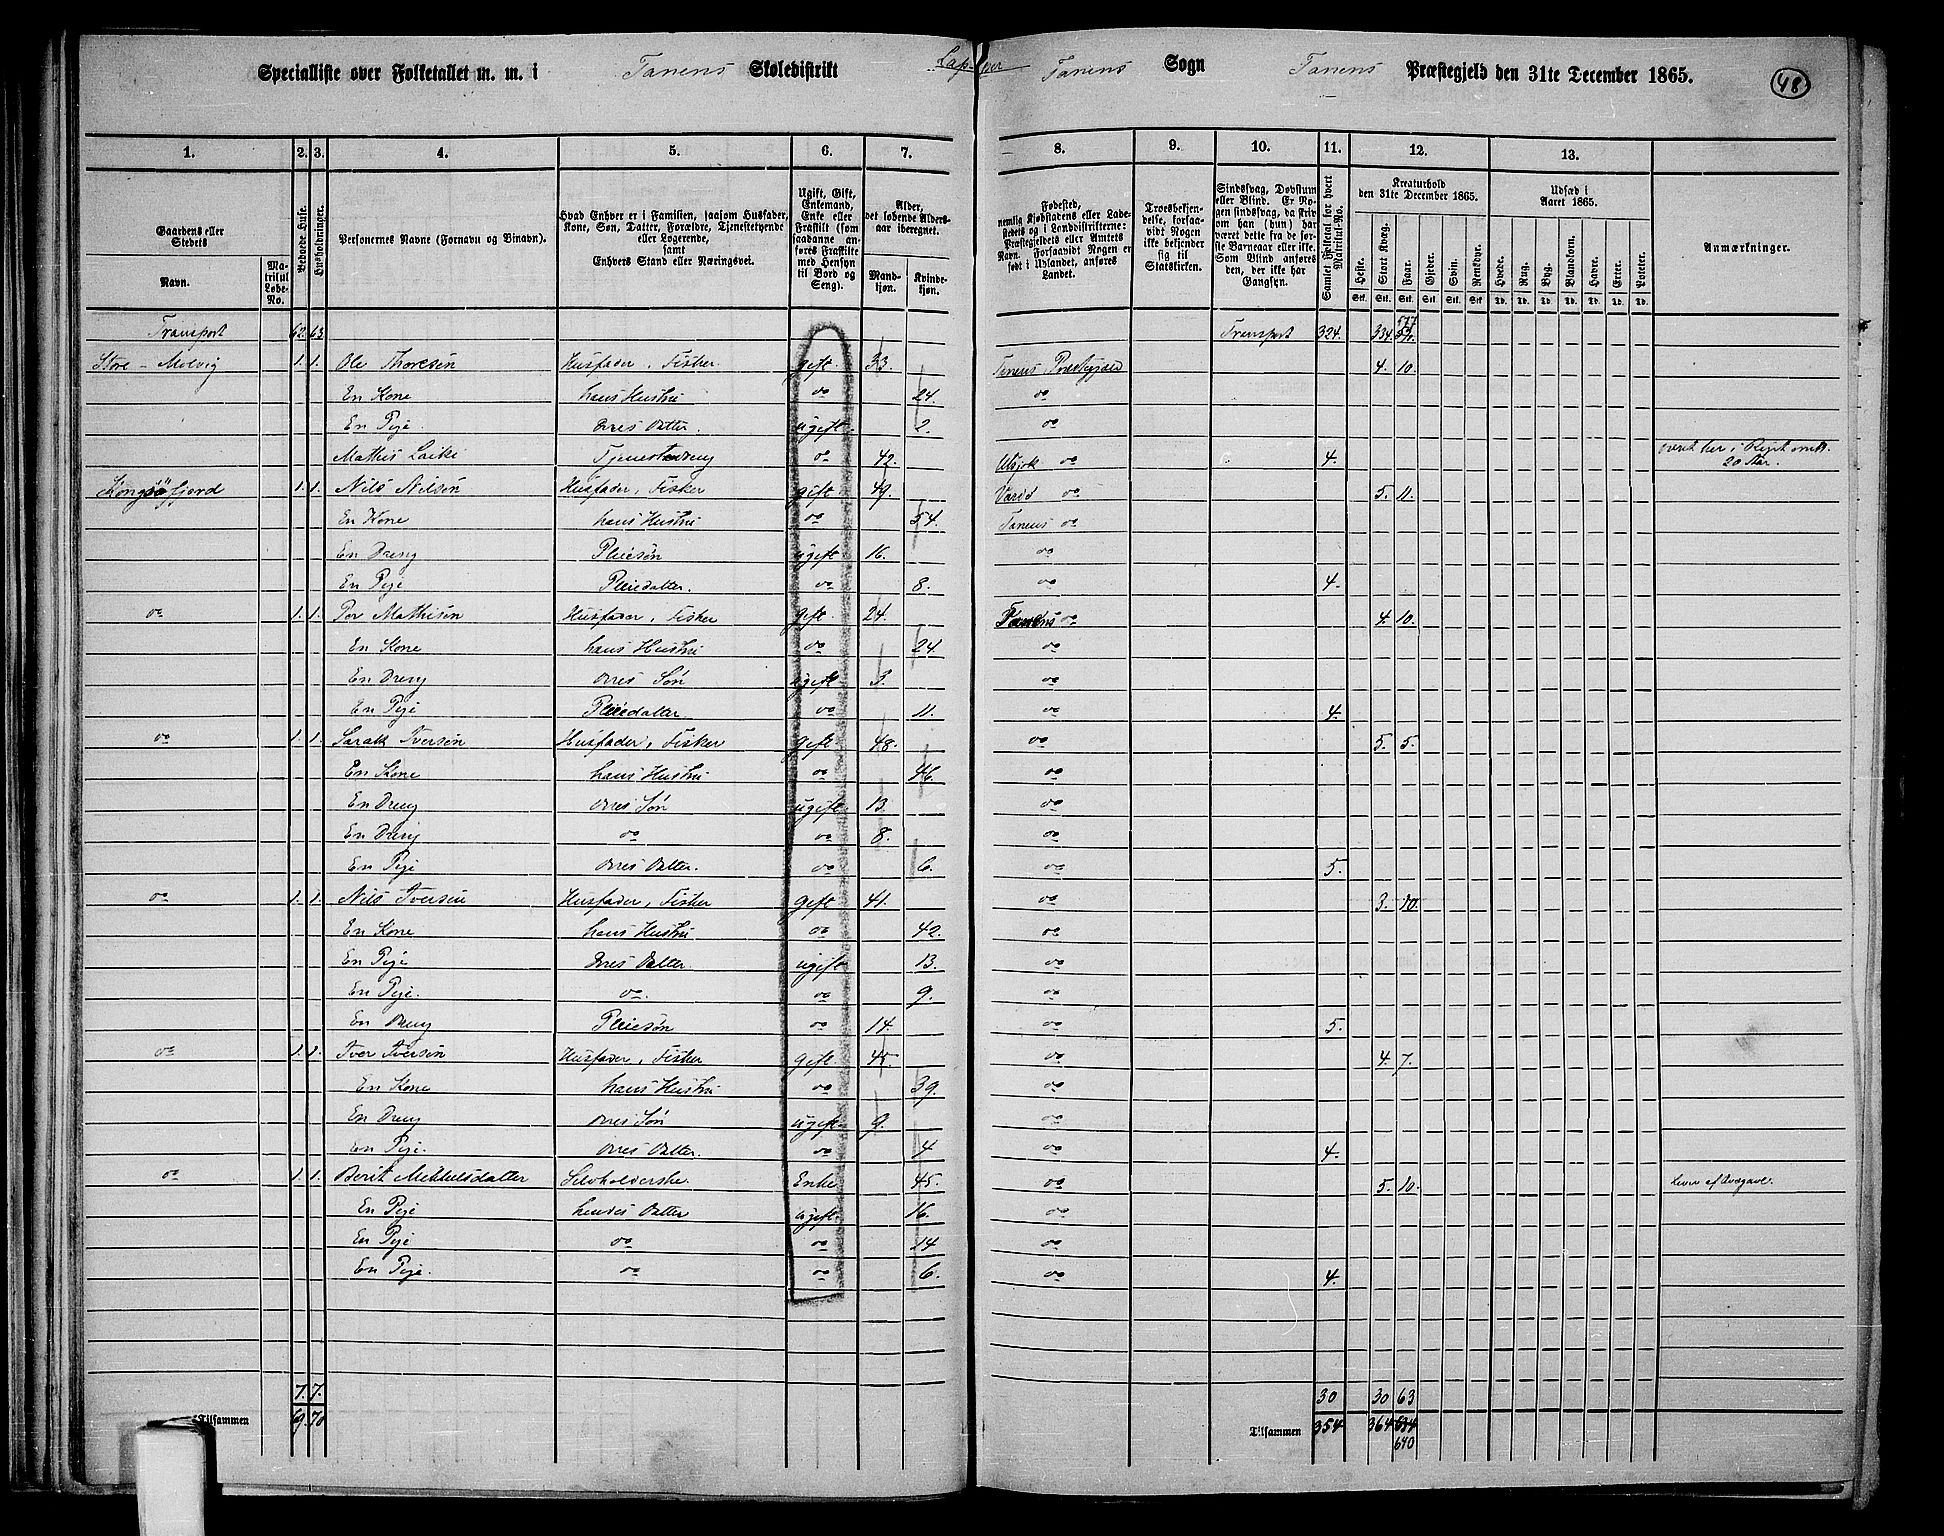 Specialliste over Folketallet m. m. i Tanens Skoledistrikt Lapper Tanens Sogn Tanens Præstegjeld den 31te December 1865. 48
1. 2. 3. 4. 5. 6. 7. 8. 9. 10. 11. 12. 13.
Gaardens eller Stedets
Navn.
Matrikul Løbe-No.
Beboede Huse.
Husholdninger.
Personernes Navne (Fornavn og Binavn).
Hvad Enhver er i Familien, saasom Husfader, Kone, Søn, Datter, Forældre, Tjenestetyende eller Logerende, samt Enhvers Stand eller Næringsvei.
Ugift, Gift, Enkemand, Enke eller Fraskilt (som saadanne anføres Fraskilte med Hensyn til Bord og Seng).
Alder, det løbende Aldersaar iberegnet.
Mandkjøn. Kvindekjøn.
Fødested, nemlig Kjøbstadens eller Ladestedets og i Landdistrikterne: Præstegjeldets eller Amtets Navn. Forsaavidt Nogen er født i Udlandet, anføres Landet.
Troesbekjendelse, forsaavidt Nogen ikke bekjender sig til Statskirken.
Sindssvag, Døvstum eller Blind. Er Nogen sindssvag, da skriv om han (hun) har været dette fra de første Barneaar eller ikke. Som Blind anføres den, der ikke har Gangsyn.
Samlet Folketal for hvert Matrikul-No.
Kreaturhold den 31te December 1865.
Heste. Stort Kvæg. Faar. Gjeder. Svin. Rensdyr.
Udsæd i Aaret 1865.
Hvede. Rug. Byg. Blandkorn. Havre. Erter. Poteter.
Anmærkninger.
Transport 62. 63 Transport 324. 334. 577
Store-Molvig 1. 1. Ole Thoresen Husfader, Fisker gift 33. Tanens Præstegjeld 4. 10.
En Kone hans Hustru do 24. do
En Pige deres Datter. ugift. 2. do
Mathis Laiki Tjenestedreng do 42. Utsjok do 4. været her i Riget omtr. 20 Aar.
Kongsøfjord 1. 1. Nils Nilsen Husfader, Fisker gift 49. Varsø do 5. 11.
En Kone hans Hustru do 54. Tanens do
En Dreng Pleiesøn ugift 16. do
En Pige Pleiedatter. do 8. do 4.
do 1. 1. Per Mathisen Husfader, Fisker gift. 24. Tanens do 4. 10.
En Kone hans Hustru do 24. do
En Dreng deres Søn ugift 3. do
En Pige Pleiedatter do 11. do 4.
do 1. 1. Sarak Iversen Husfader, Fisker gift 48. do 5. 5.
En Kone hans Hustru do 46. do
En Dreng deres Søn ugift 13. do
En Dreng do do 8. do
En Pige deres Datter. do 6. do 5.
do 1. 1. Nils Iversen Husfader, Fisker gift 41. do 3. 10.
En Kone hans Hustru do 42. do
En Pige deres Datter. ugift 13. do
En Pige. do. do 9. do
En Dreng Pleiesøn do 14. do 5.
do 1. 1. Iver Iversen Husfader, Fisker gift. 45. do 4. 7.
En Kone hans Hustru do 39. do
En Dreng deres Søn ugift 9. do
En Pige. deres Datter. do 4 do 4.
do 1. 1. Berit Mikkelsdatter Selvholderske Enke 45. do 5. 10. Lever af Indgave.
En Pige hendes Datter ugift. 16. do
En Pige do do 14 do
En Pige. do do 6. do 4.
7. 7. 30 30 63
Tilsammen 69. 70 Tilsammen 354 364 634
640